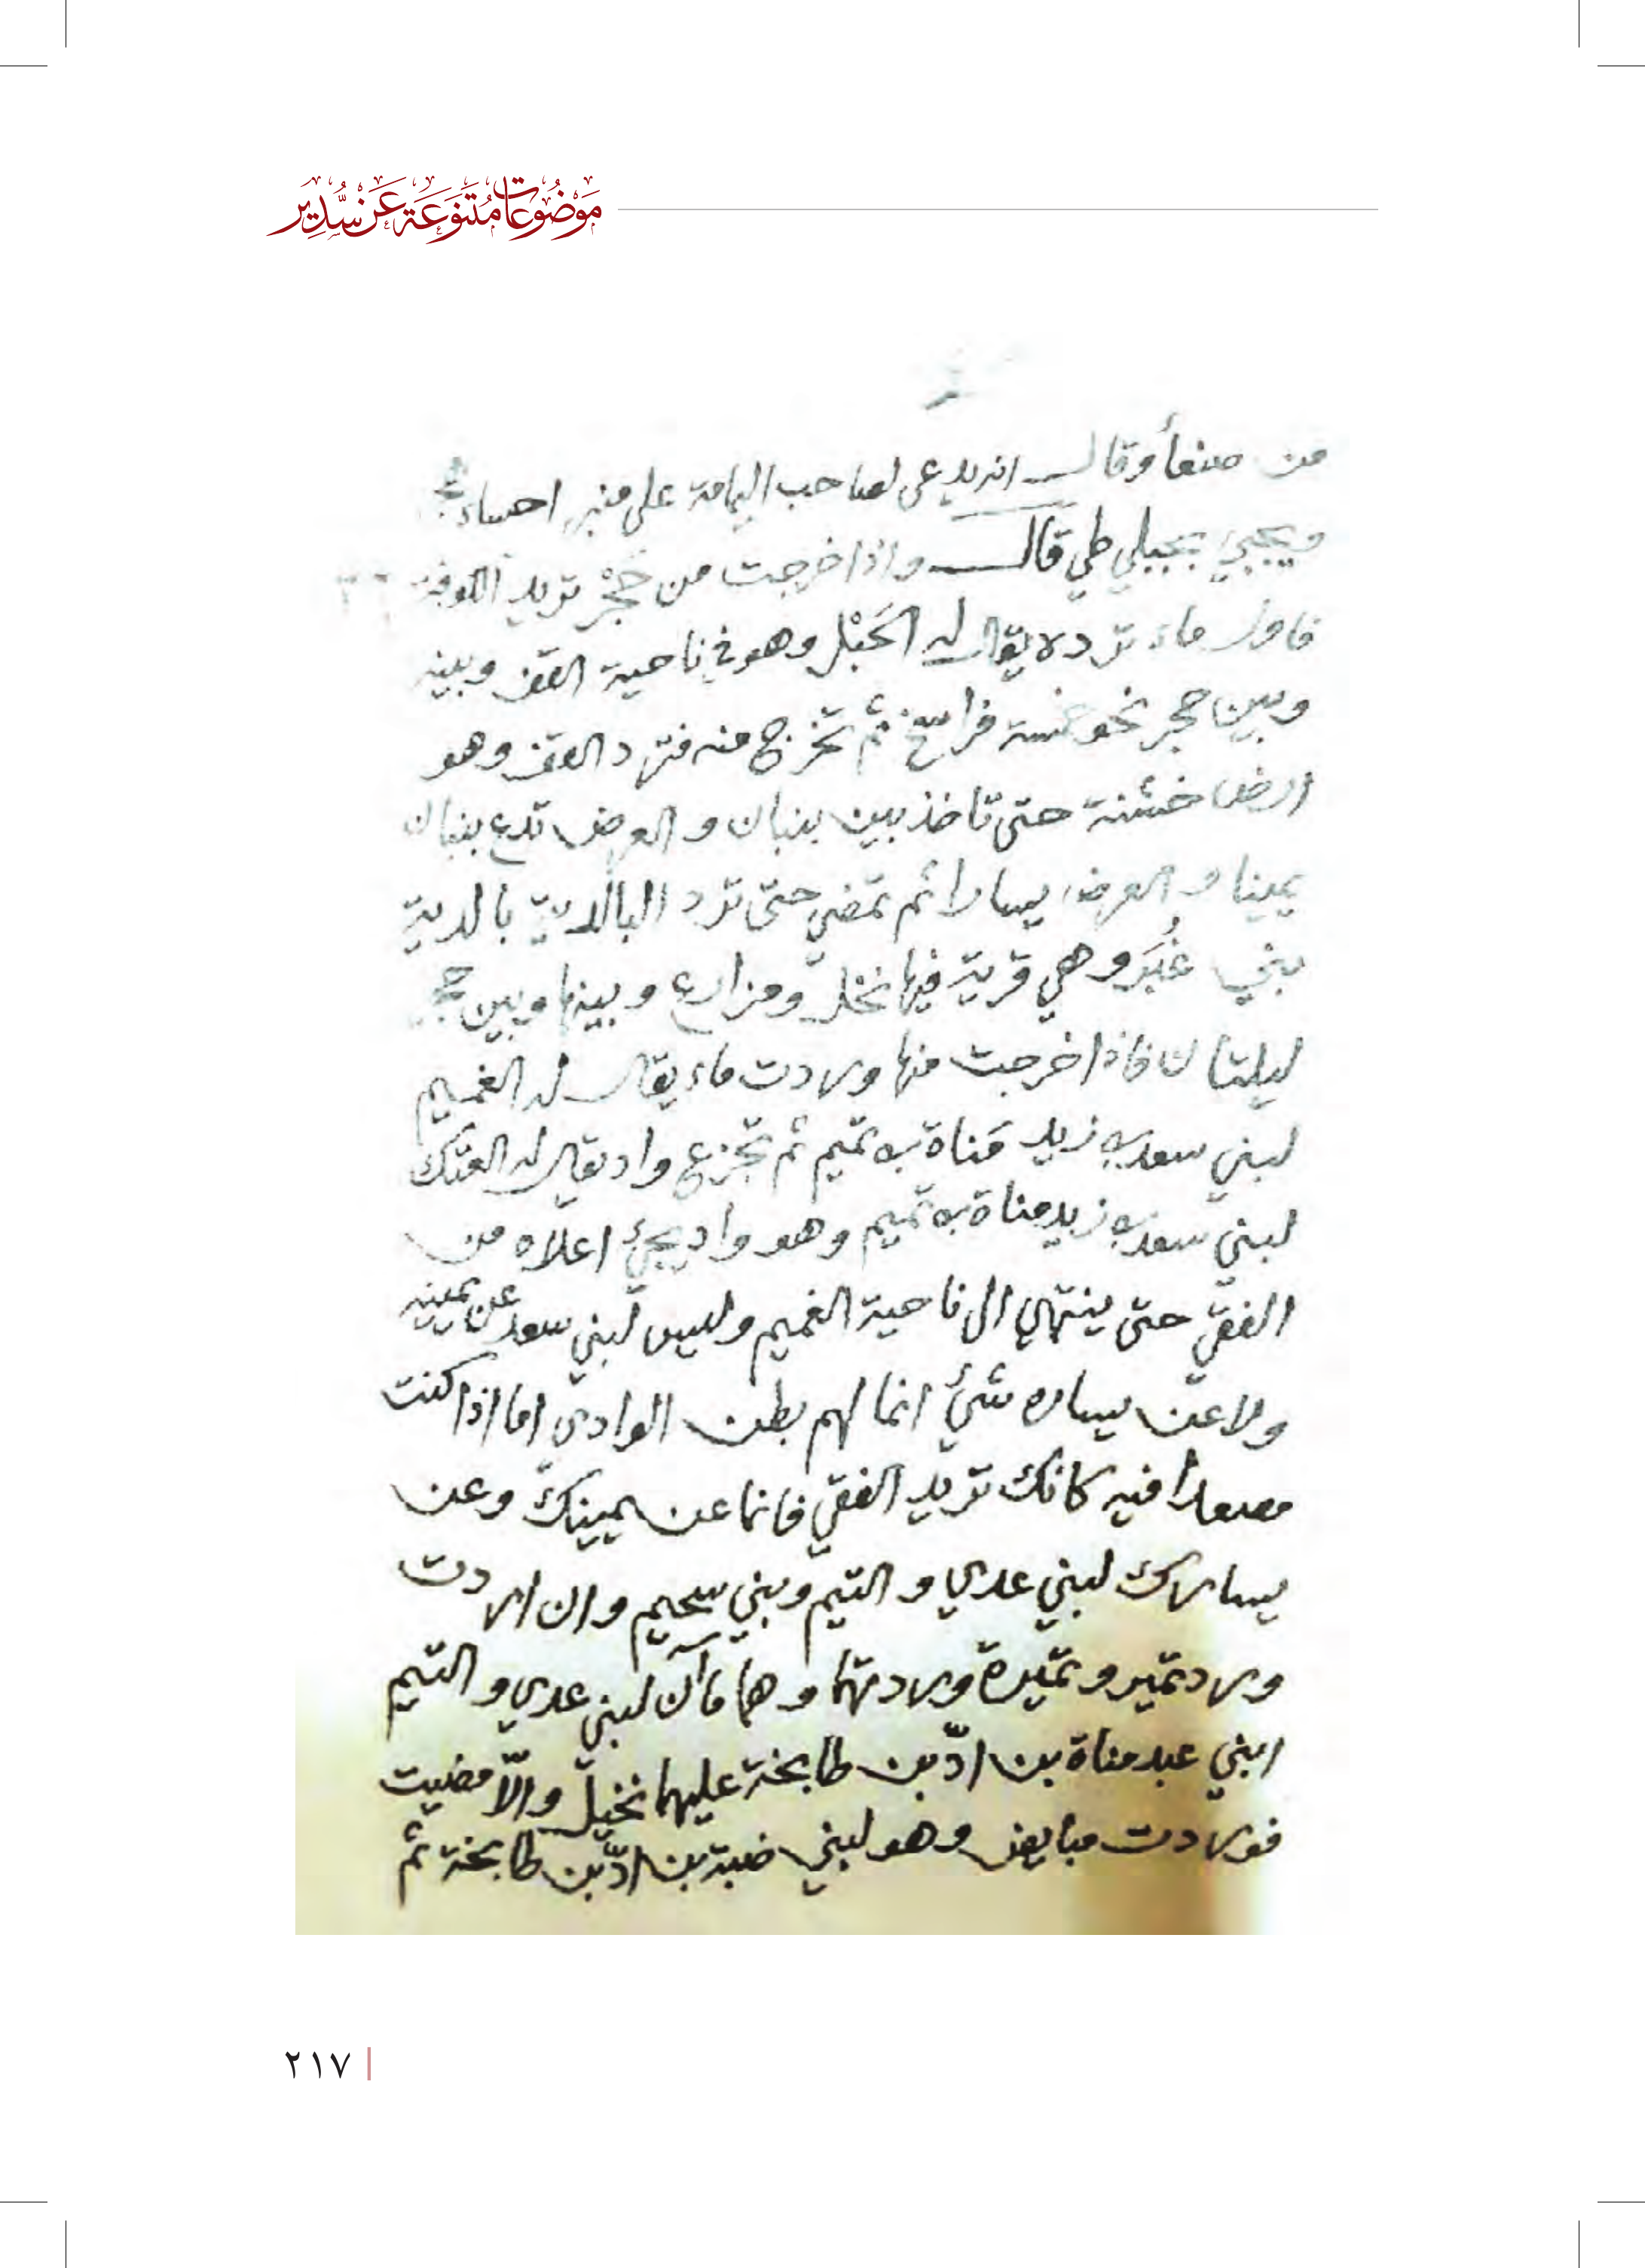 موضوعات متنوعة عن سدير
من صنعأ وقال انه يدعى لصاحب اليمامة على منبر احساء
ويجبي بجبلي طي قال واذا خرجت من حَجْر تريد الكوفة
فاول ماء ترده يقال له الحَبْل وهو في ناحية القف وبينه
وبين حجر نحو خمسة فراسخ ثم تخرج منه فترد القف وهو
ارض خشنة حتى تاخذ بين بنبان و العرض تدع بنبان
يمينا و العرض يسارا ثم تمضي حتى ترد البالدية بالدية
بني غُبَر وهي قرية فيها نخل ومزارع وبينها وبين حجر
ليلتان فاذا خرجت منها وردت ماء يقال له الغميم
لبني سعد بن زيد مَناة بن تميم ثم تجزع واد يقال له العتك
لبني سعد بن زيد مناة بن تميم وهو واد يجئ اعلاه من
الفقي حتى ينتهي الى ناحية الغميم وليس لبني سعد عن يمينه
ولا عن يساره شيء انما لهم بطن الوادي اما اذا كنت
مصعداً فيه كانك تريد الفقي فانما عن يمينك وعن
يسارك لبني عدي و التيم وبني سحيم وان اردت
ورد تمير وتميرة وردتهما وهما مآن لبني عدي و التيم
ابني عبد مناة بن ادّ بن طابخة عليهما نخيل والاّ مضيت
فوردت مبايض وهو لبني ضبة بن ادّ بن طابخة ثم
٢١٧